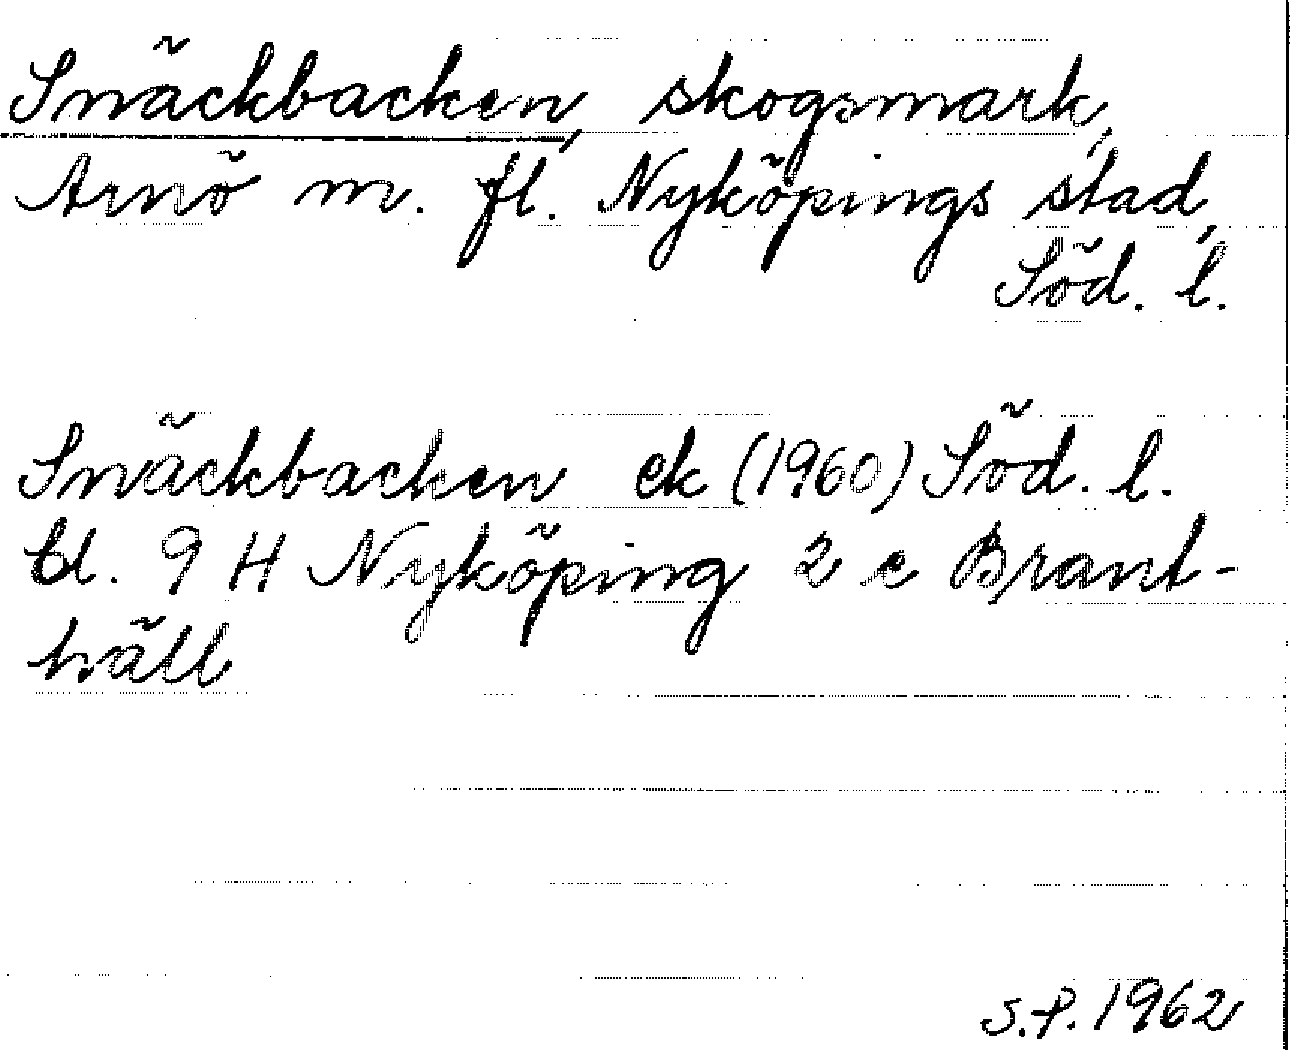 Snäckbacken, skogsmark,
Arnö m. fl. Nyköpings stad,
Söd. l.
Snäckbacken ek (1960) Söd. l.
bl. 9 H Nyköping 2 e Brant-
häll
S.P. 1962